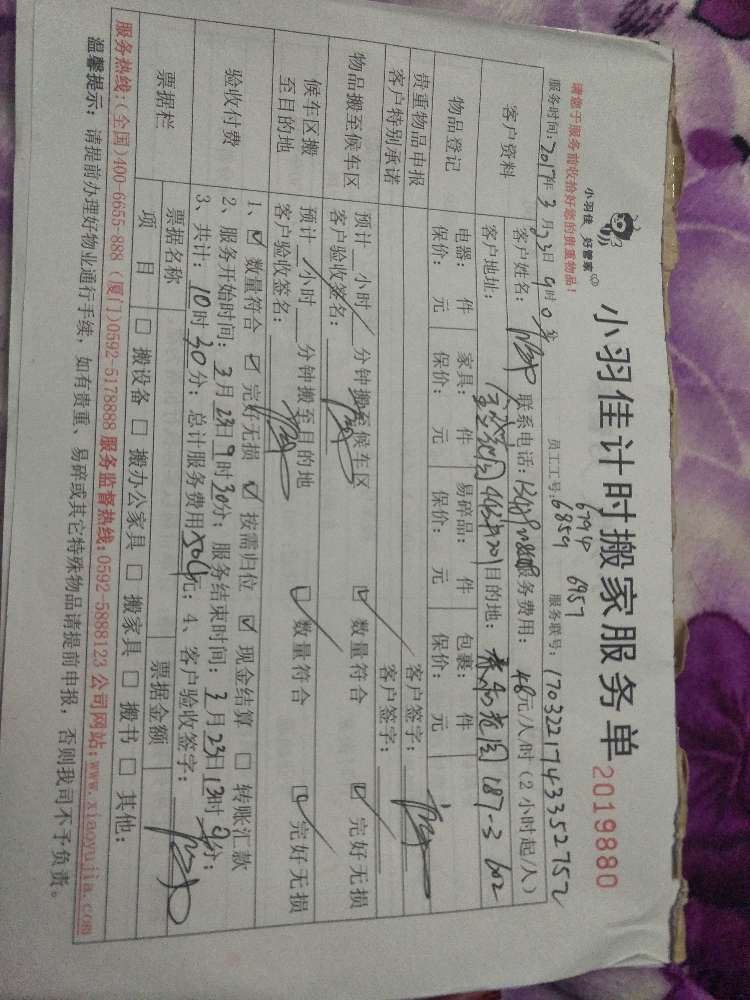 小羽佳 好管家
小羽佳计时搬家服务单 2019880
请您于服务前收拾好您的贵重物品!
员工工号: 6794 6957
6859
服务时间: 2017年3月23日9时0分 服务联号: 1703221743352752
客户资料 客户姓名: 联系电话: 服务费用: 48元/人/时(2小时起/人)
客户地址: 目的地: 187-3 602
物品登记 电器: 件 家具: 件 易碎品: 件 包裹: 件
保价: 元 保价: 元 保价: 元 保价: 元
贵重物品申报 客户签字:
客户特别承诺 客户签字:
物品搬至候车区 预计 小时 分钟搬至候车区 数量符合 完好无损
客户验收签名:
候车区搬至目的地 预计 小时 分钟搬至目的地 数量符合 完好无损
客户验收签名:
验收付费 1、 数量符合 完好无损 按需归位 现金结算 转账汇款
2、服务开始时间: 3月23日9时30分; 服务结束时间: 3月23日13时0分;
3、共计: 10时30分; 总计服务费用 504元; 4、客户验收签字:
票据栏 票据名称 票据金额
项目 搬设备 搬办公家具 搬家具 搬书 其他:
服务热线:(全国)400-6655-888 (厦门)0592-5178888 服务监督热线:0592-5888123 公司网站:www.xiaoyujia.com
温馨提示: 请提前办理好物业通行手续, 如有贵重、易碎或其它特殊物品请提前申报, 否则我司不予负责。